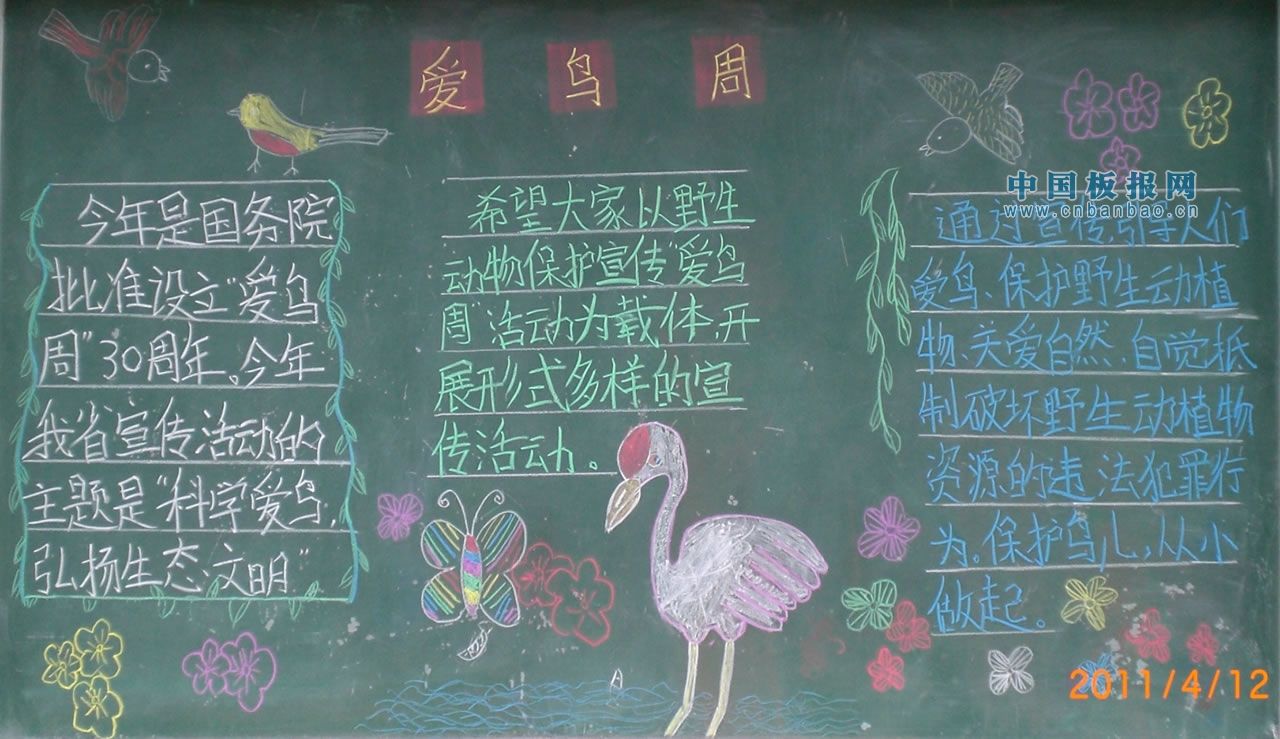 爱鸟周
今年是国务院
批准设立"爱鸟
周"30周年。今年
我省宣传活动的
主题是"科学爱鸟，
弘扬生态文明"
希望大家以"野生
动物保护宣传"爱鸟
周"活动为载体，开
展形式多样的宣
传活动。
中国板报网
www.cnbanbao.cn
通过宣传，引导人们
爱鸟、保护野生动植
物、关爱自然、自觉抵
制破坏野生动植物
资源的违法犯罪行
为。保护鸟儿，从小
做起。
2011/4/12